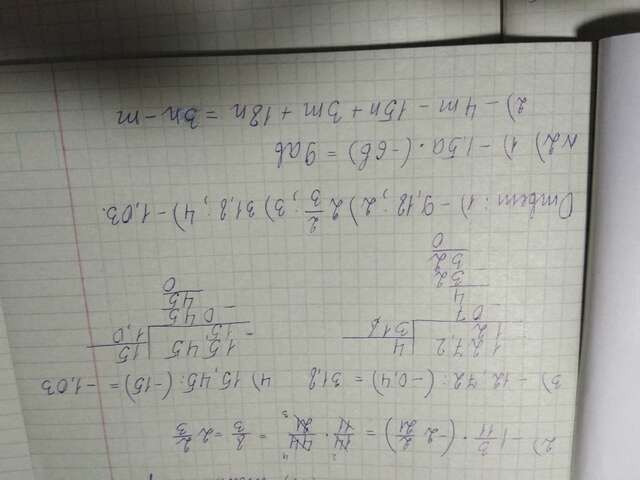 2) - 1 3/11 · (-2 2/21) = 14/11 · 44/21 = 8/3 = 2 2/3
3) - 12,72 : (-0,4) = 31,8 4) 15,45 : (-15) = -1,03
127,2 | 4
12 | 31,8
07
4
32
32
0
15,45 | 15
15 | 1,0
045
45
0
Ответ: 1) - 9,18; 2) 2 2/3; 3) 31,8; 4) - 1,03.
N2) 1) - 1,5a · (-6b) = 9ab
2) - 4m - 15n + 3m + 18n = 3n - m